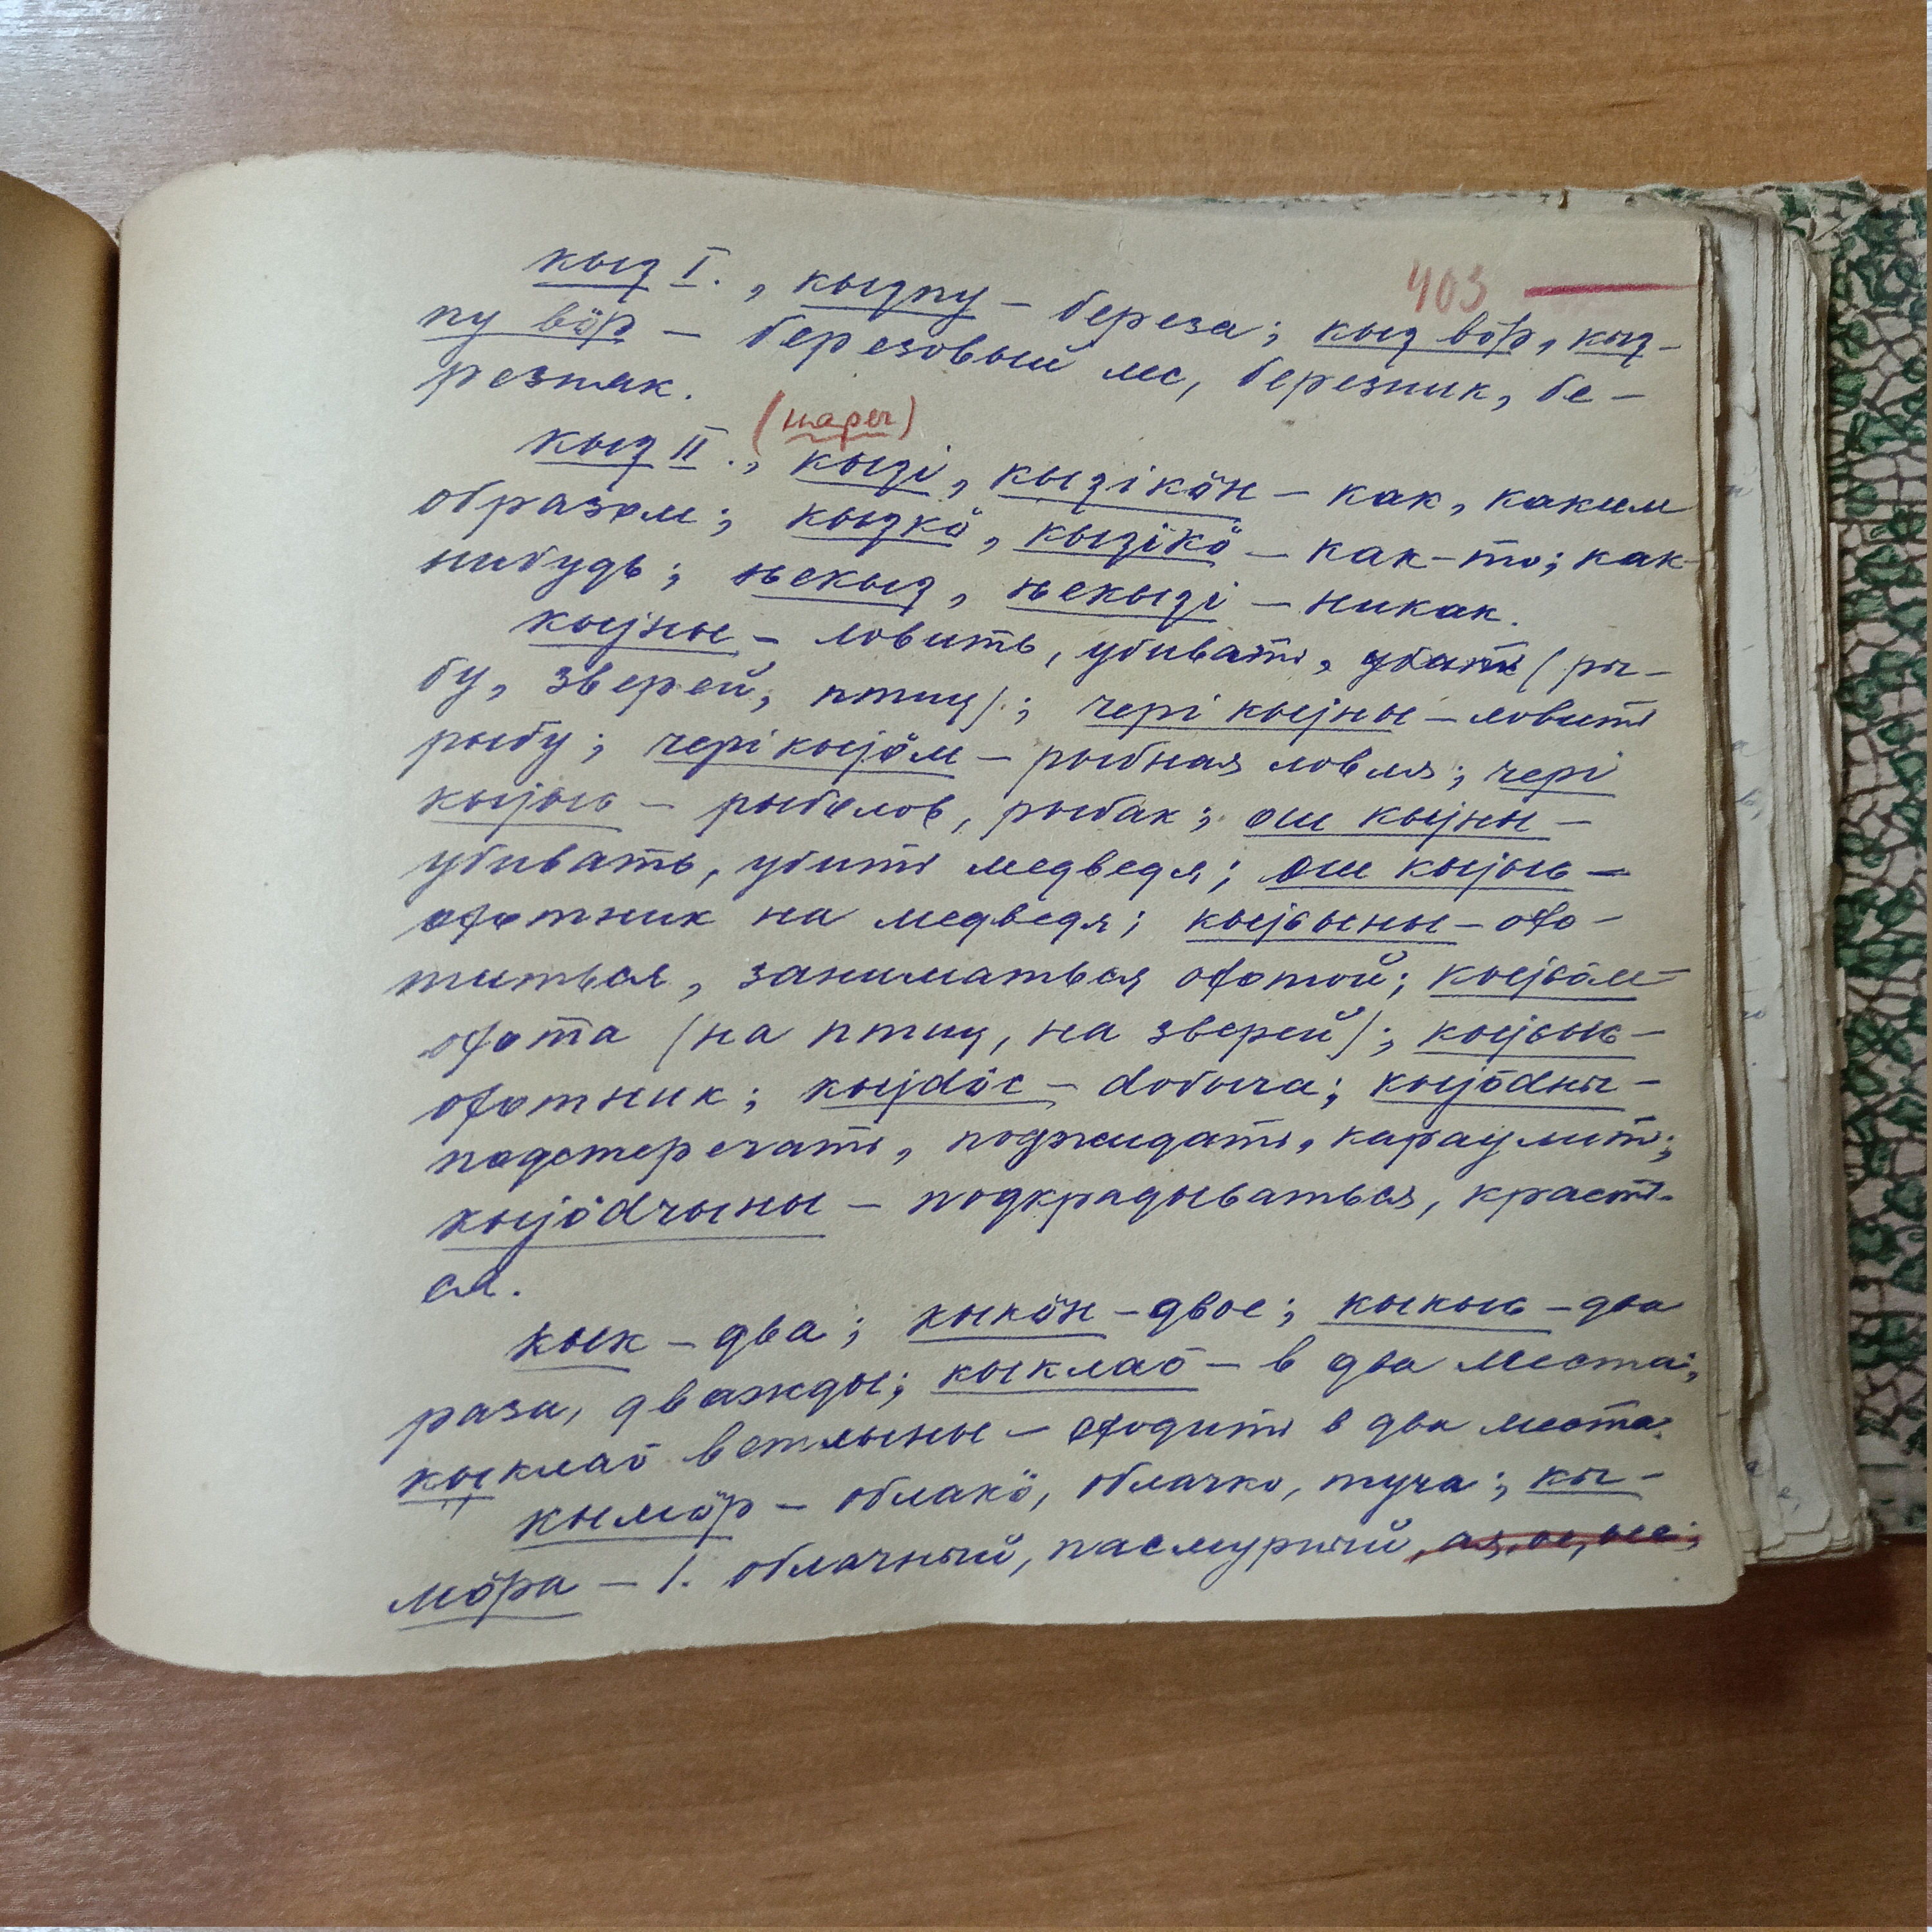 403
кыԅ I., кыԅпу – береза; кыԅ вöр, кыԅ-
пу вöр – березовый лес, березник, бе-
резняк.
(нареч)
кыԅ II., кыԅі, кыԅікöн – как, каким
образом; кыԅкö, кыԅікö – как-то; как-
нибудь; њекыԅ, њекыԅі – никак.
кыјны – ловить, убивать, убить (ры-
бу, зверей, птиц); чері кыјны – ловить
рыбу; чері кыјöм – рыбная ловля; чері
кыјыԍ – рыболов, рыбак; ош кыјны –
убивать, убить медведя; ош кыјыԍ –
охотник на медведя; кыјԍыны – охо-
титься, заниматься охотой; кыјԍöм –
охота (на птиц, на зверей); кыјԍыԍ –
охотник; кыјdöс – dобыча; кыјödны –
подстерегать, поджидать, караулить;
кыјödчыны – подкрадываться, красть-
ся.
кык – два; кыкöн – двое; кыкыԍ – два
раза, дважды; кыклаö – в два места;
кыклаö ветлыны – сходить в два места.
кымöр – облакö, облачко, туча; кы-
мöра – 1. облачный, пасмурный, ая, ое, ые;